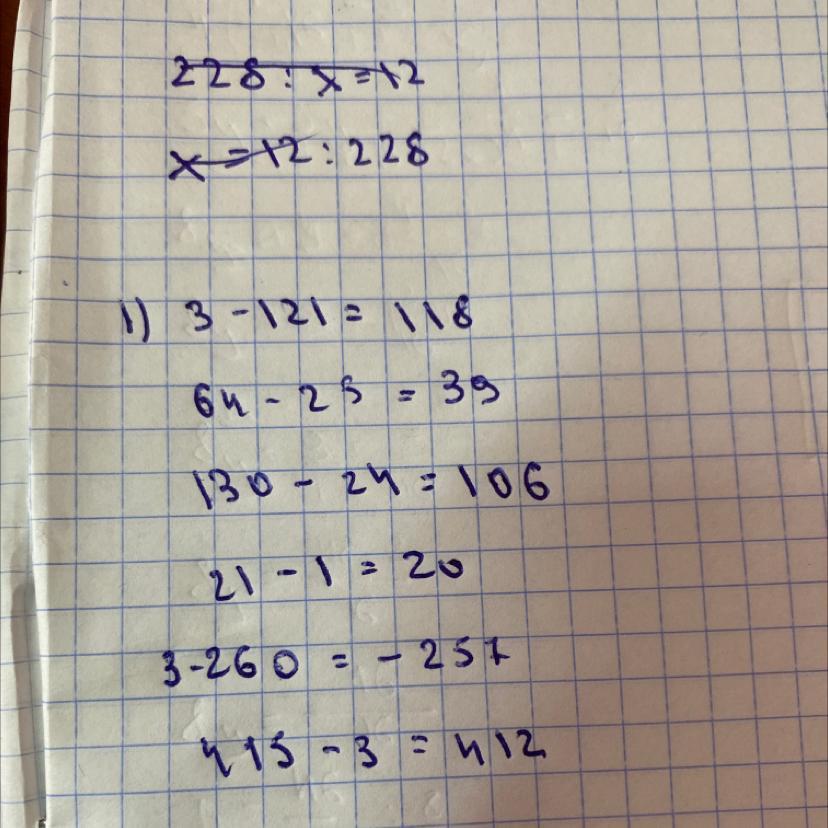 228 : x = 12
x = 12 : 228
1) 3 - 121 = 118
64 - 25 = 39
130 - 24 = 106
21 - 1 = 20
3 - 260 = - 257
415 - 3 = 412